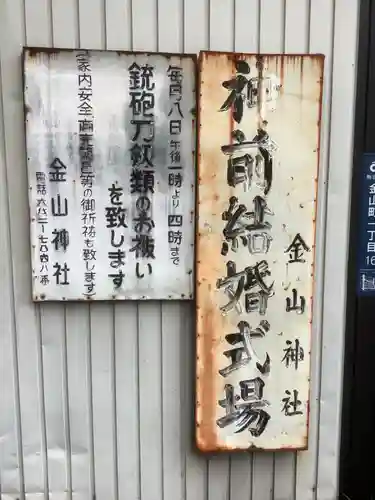 毎月八日午後一時より四時まで
銃砲刀剣類のお祓い
を致します
家内安全商売繁昌等の御祈祷も致します
金山神社
神前結婚式場
金山神社
金山町一丁目
16